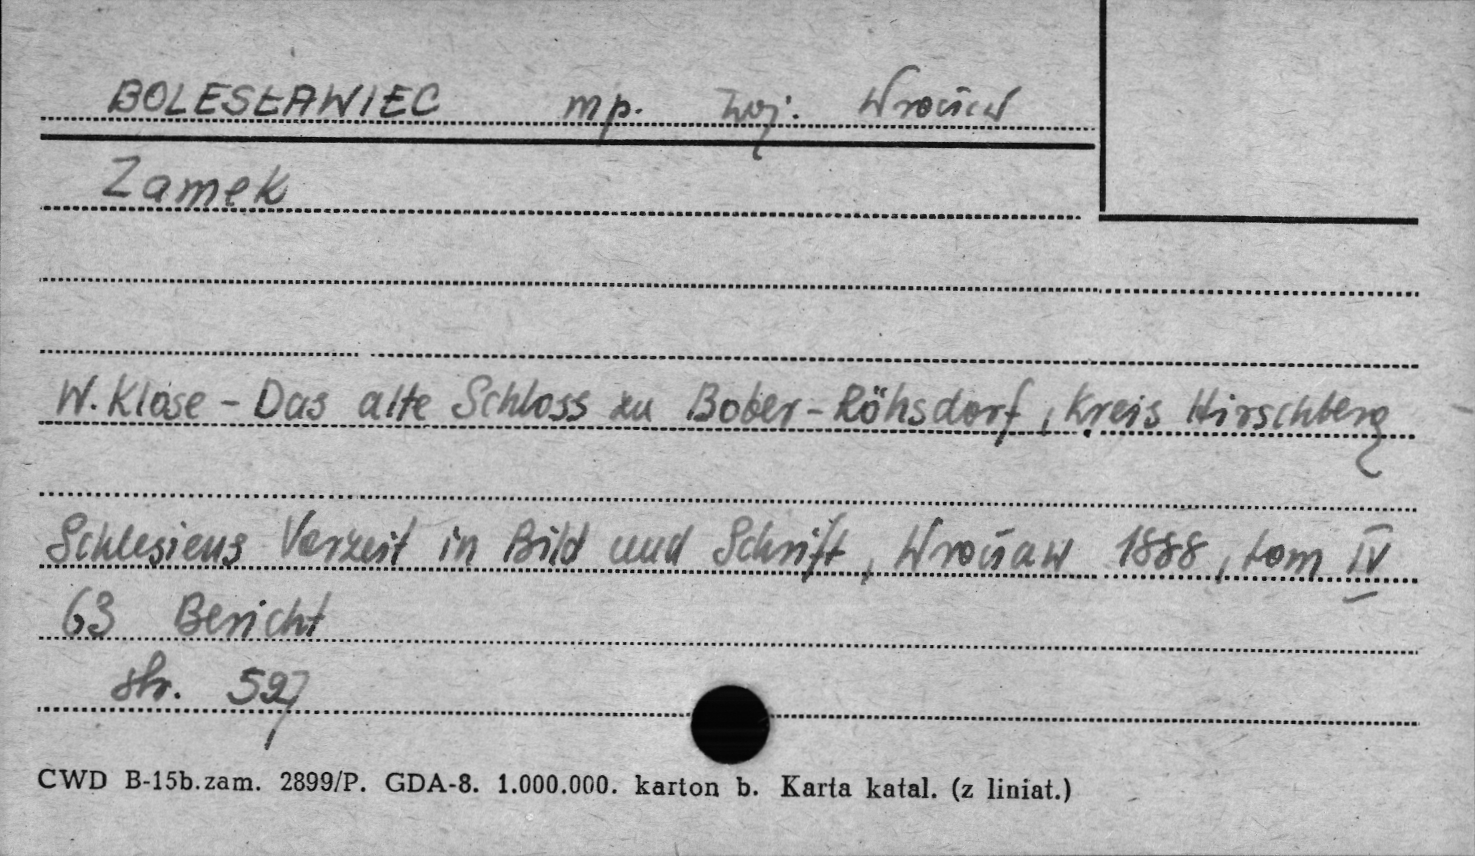 BOLESŁAWIEC mp. woj. Wrocław
Zamek
W. Klose - Das alte Schloss zu Bober-Röhsdorf, Kreis Hirschberg
Schlesiens Vorzeit in Bild und Schrift, Wrocław 1888, tom IV
63 Bericht
str. 527
CWD B-15b.zam. 2899/P. GDA-8. 1.000.000. karton b. Karta katal. (z liniat.)